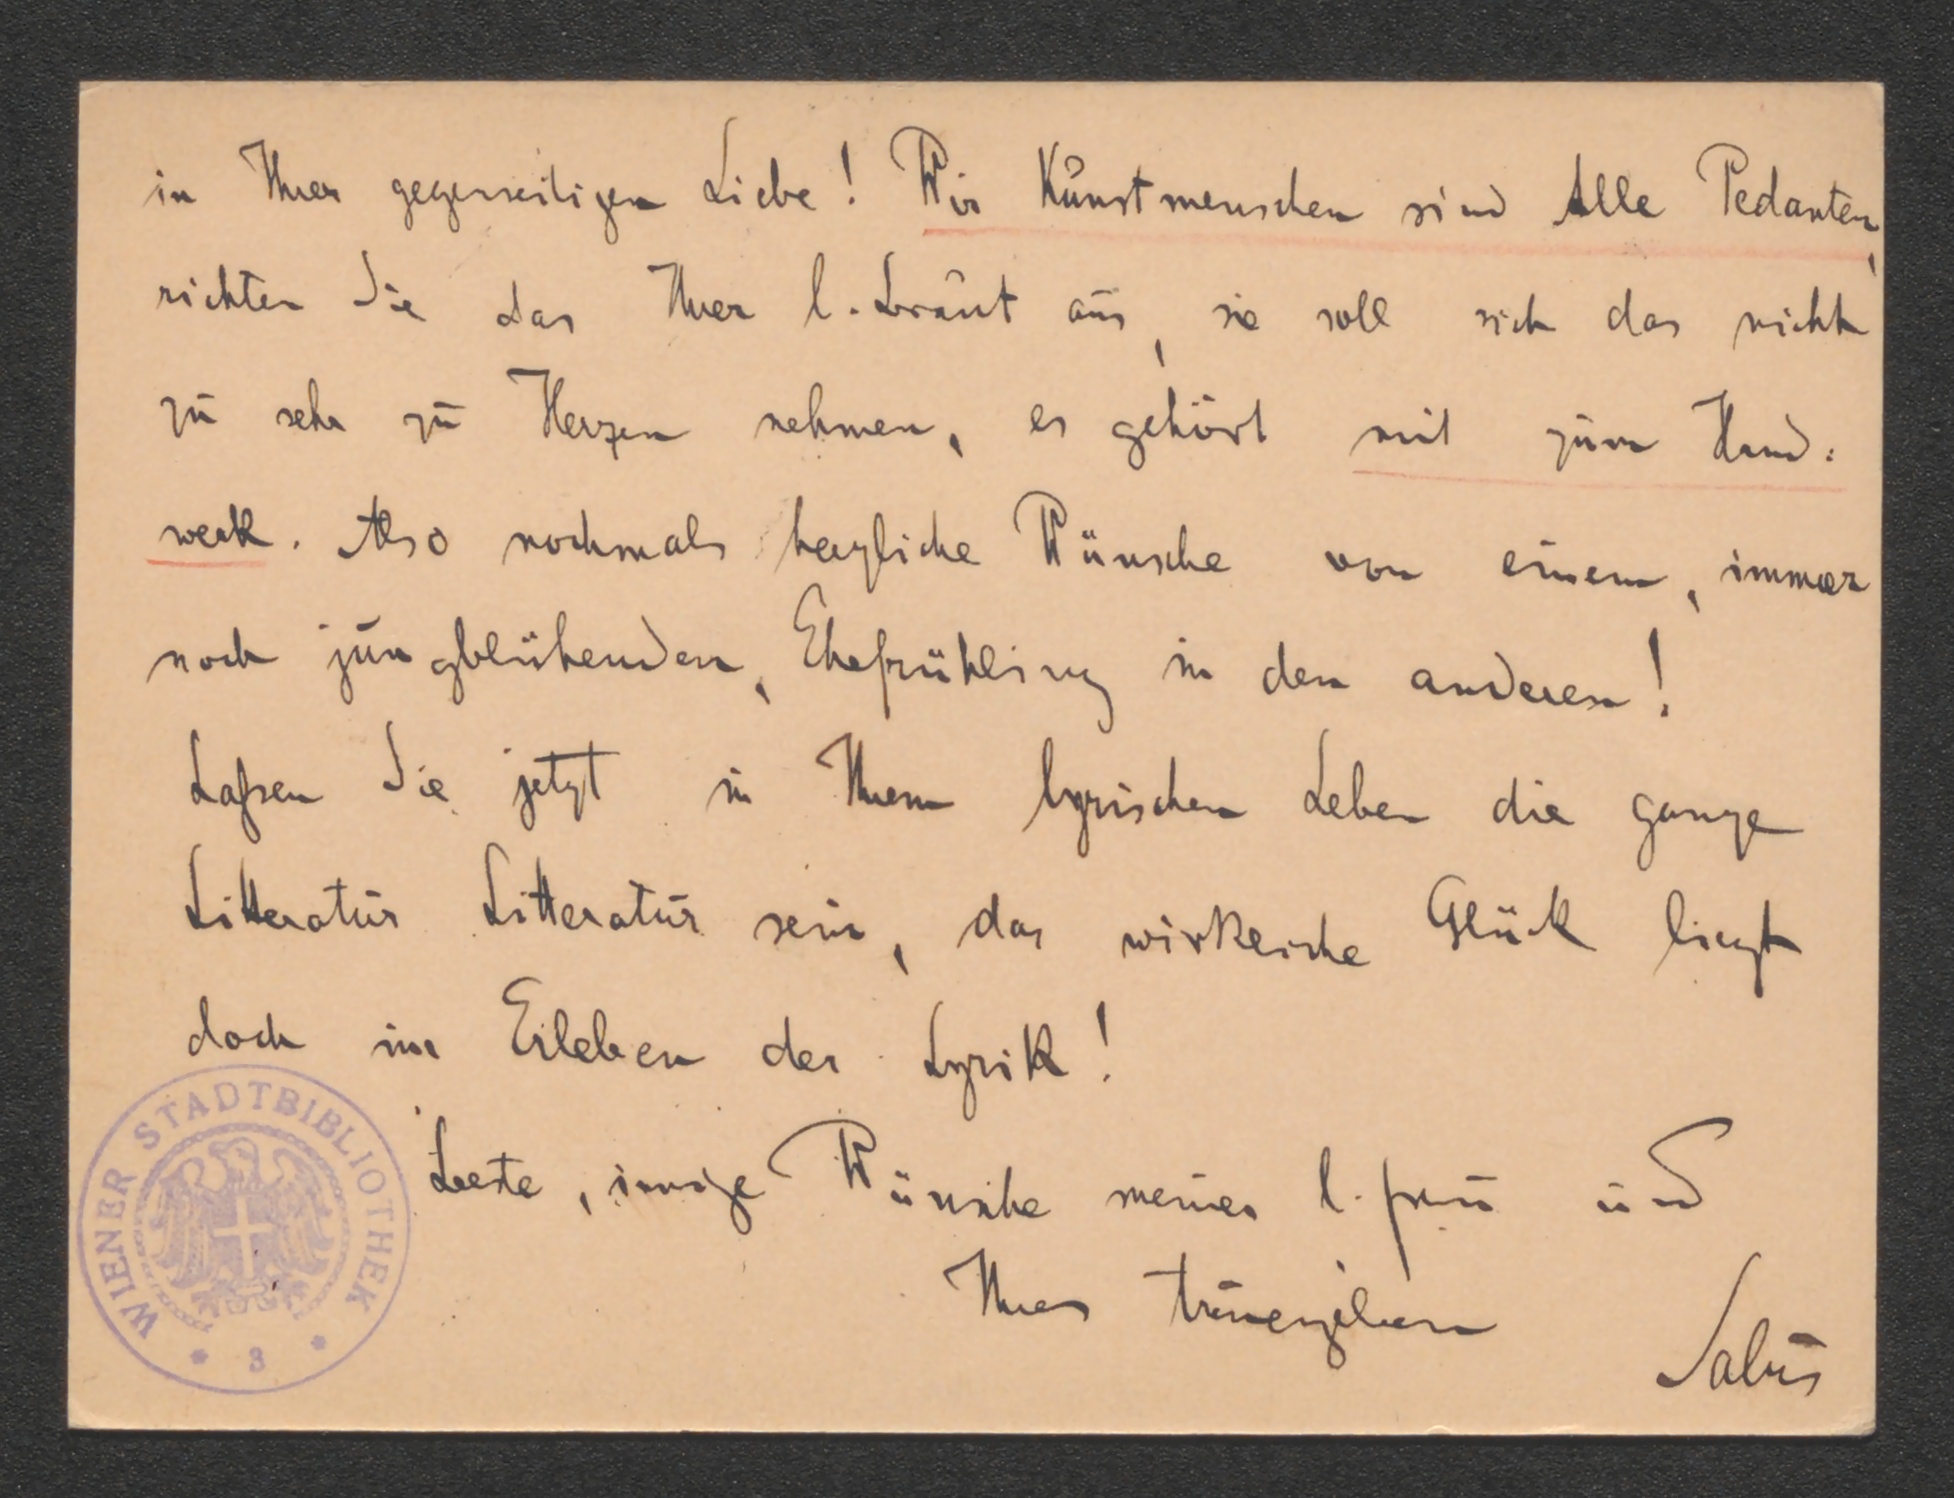 in Ihrer gegenseitigen Liebe! Wir Kunstmenschen sind Alle Pedanten,
richten Sie das Ihrer l. Braut aus, sie soll sich das nicht
zu sehr zu Herzen nehmen, es gehört mit zum Hand-
werk. Also nochmals herzliche Wünsche von einem, immer
noch jungblühenden, Ehefrühling in den anderen!
Laßen Sie jetzt in Ihrem lyrischen Leben die ganze
Litteratur Litteratur sein, das wirkliche Glück liegt
doch im Erleben der Lyrik!
Beste, innige Wünsche meiner l. Frau und
Ihres treuergebenen
Salus
WIENER STADTBIBLIOTHEK
* 3 *